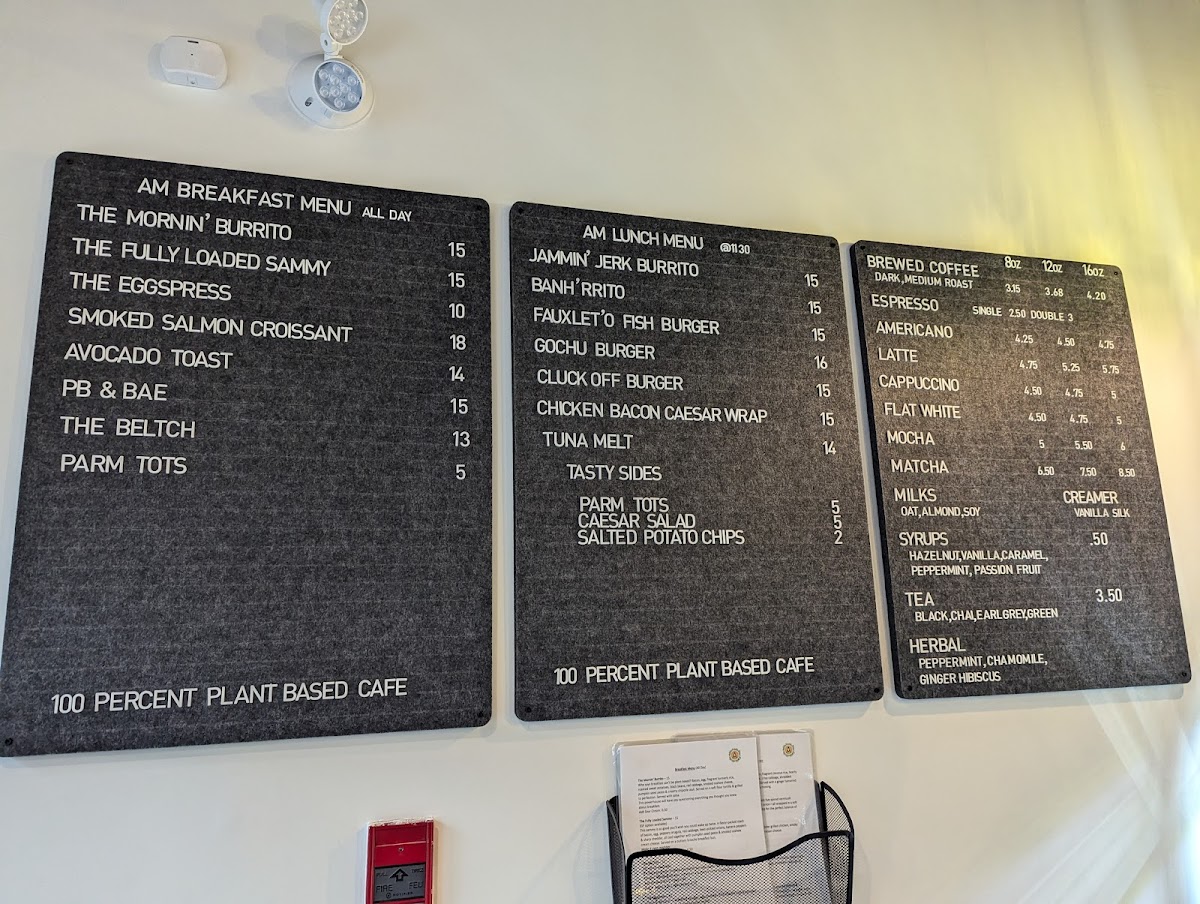 AM BREAKFAST MENU ALL DAY
THE MORNIN' BURRITO 15
THE FULLY LOADED SAMMY 15
THE EGGSPRESS 10
SMOKED SALMON CROISSANT 18
AVOCADO TOAST 14
PB & BAE 15
THE BELTCH 13
PARM TOTS 5
100 PERCENT PLANT BASED CAFE
AM LUNCH MENU @11 30
JAMMIN' JERK BURRITO 15
BANH'RRITO 15
FAUXLET'O FISH BURGER 15
GOCHU BURGER 16
CLUCK OFF BURGER 15
CHICKEN BACON CAESAR WRAP 15
TUNA MELT 14
TASTY SIDES
PARM TOTS 5
CAESAR SALAD 5
SALTED POTATO CHIPS 2
100 PERCENT PLANT BASED CAFE
BREWED COFFEE 8oz 12oz 16oz
DARK,MEDIUM ROAST 3.15 3.68 4.20
ESPRESSO SINGLE 2.50 DOUBLE 3
AMERICANO 4.25 4.50 4.75
LATTE 4.75 5.25 5.75
CAPPUCCINO 4.50 4.75 5
FLAT WHITE 4.50 4.75 5
MOCHA 5 5.50 6
MATCHA 6.50 7.50 8.50
MILKS CREAMER
OAT,ALMOND,SOY VANILLA SILK
SYRUPS .50
HAZELNUT,VANILLA,CARAMEL,
PEPPERMINT, PASSION FRUIT
TEA 3.50
BLACK,CHAI,EARL GREY,GREEN
HERBAL
PEPPERMINT, CHAMOMILE,
GINGER HIBISCUS
FIRE FEU